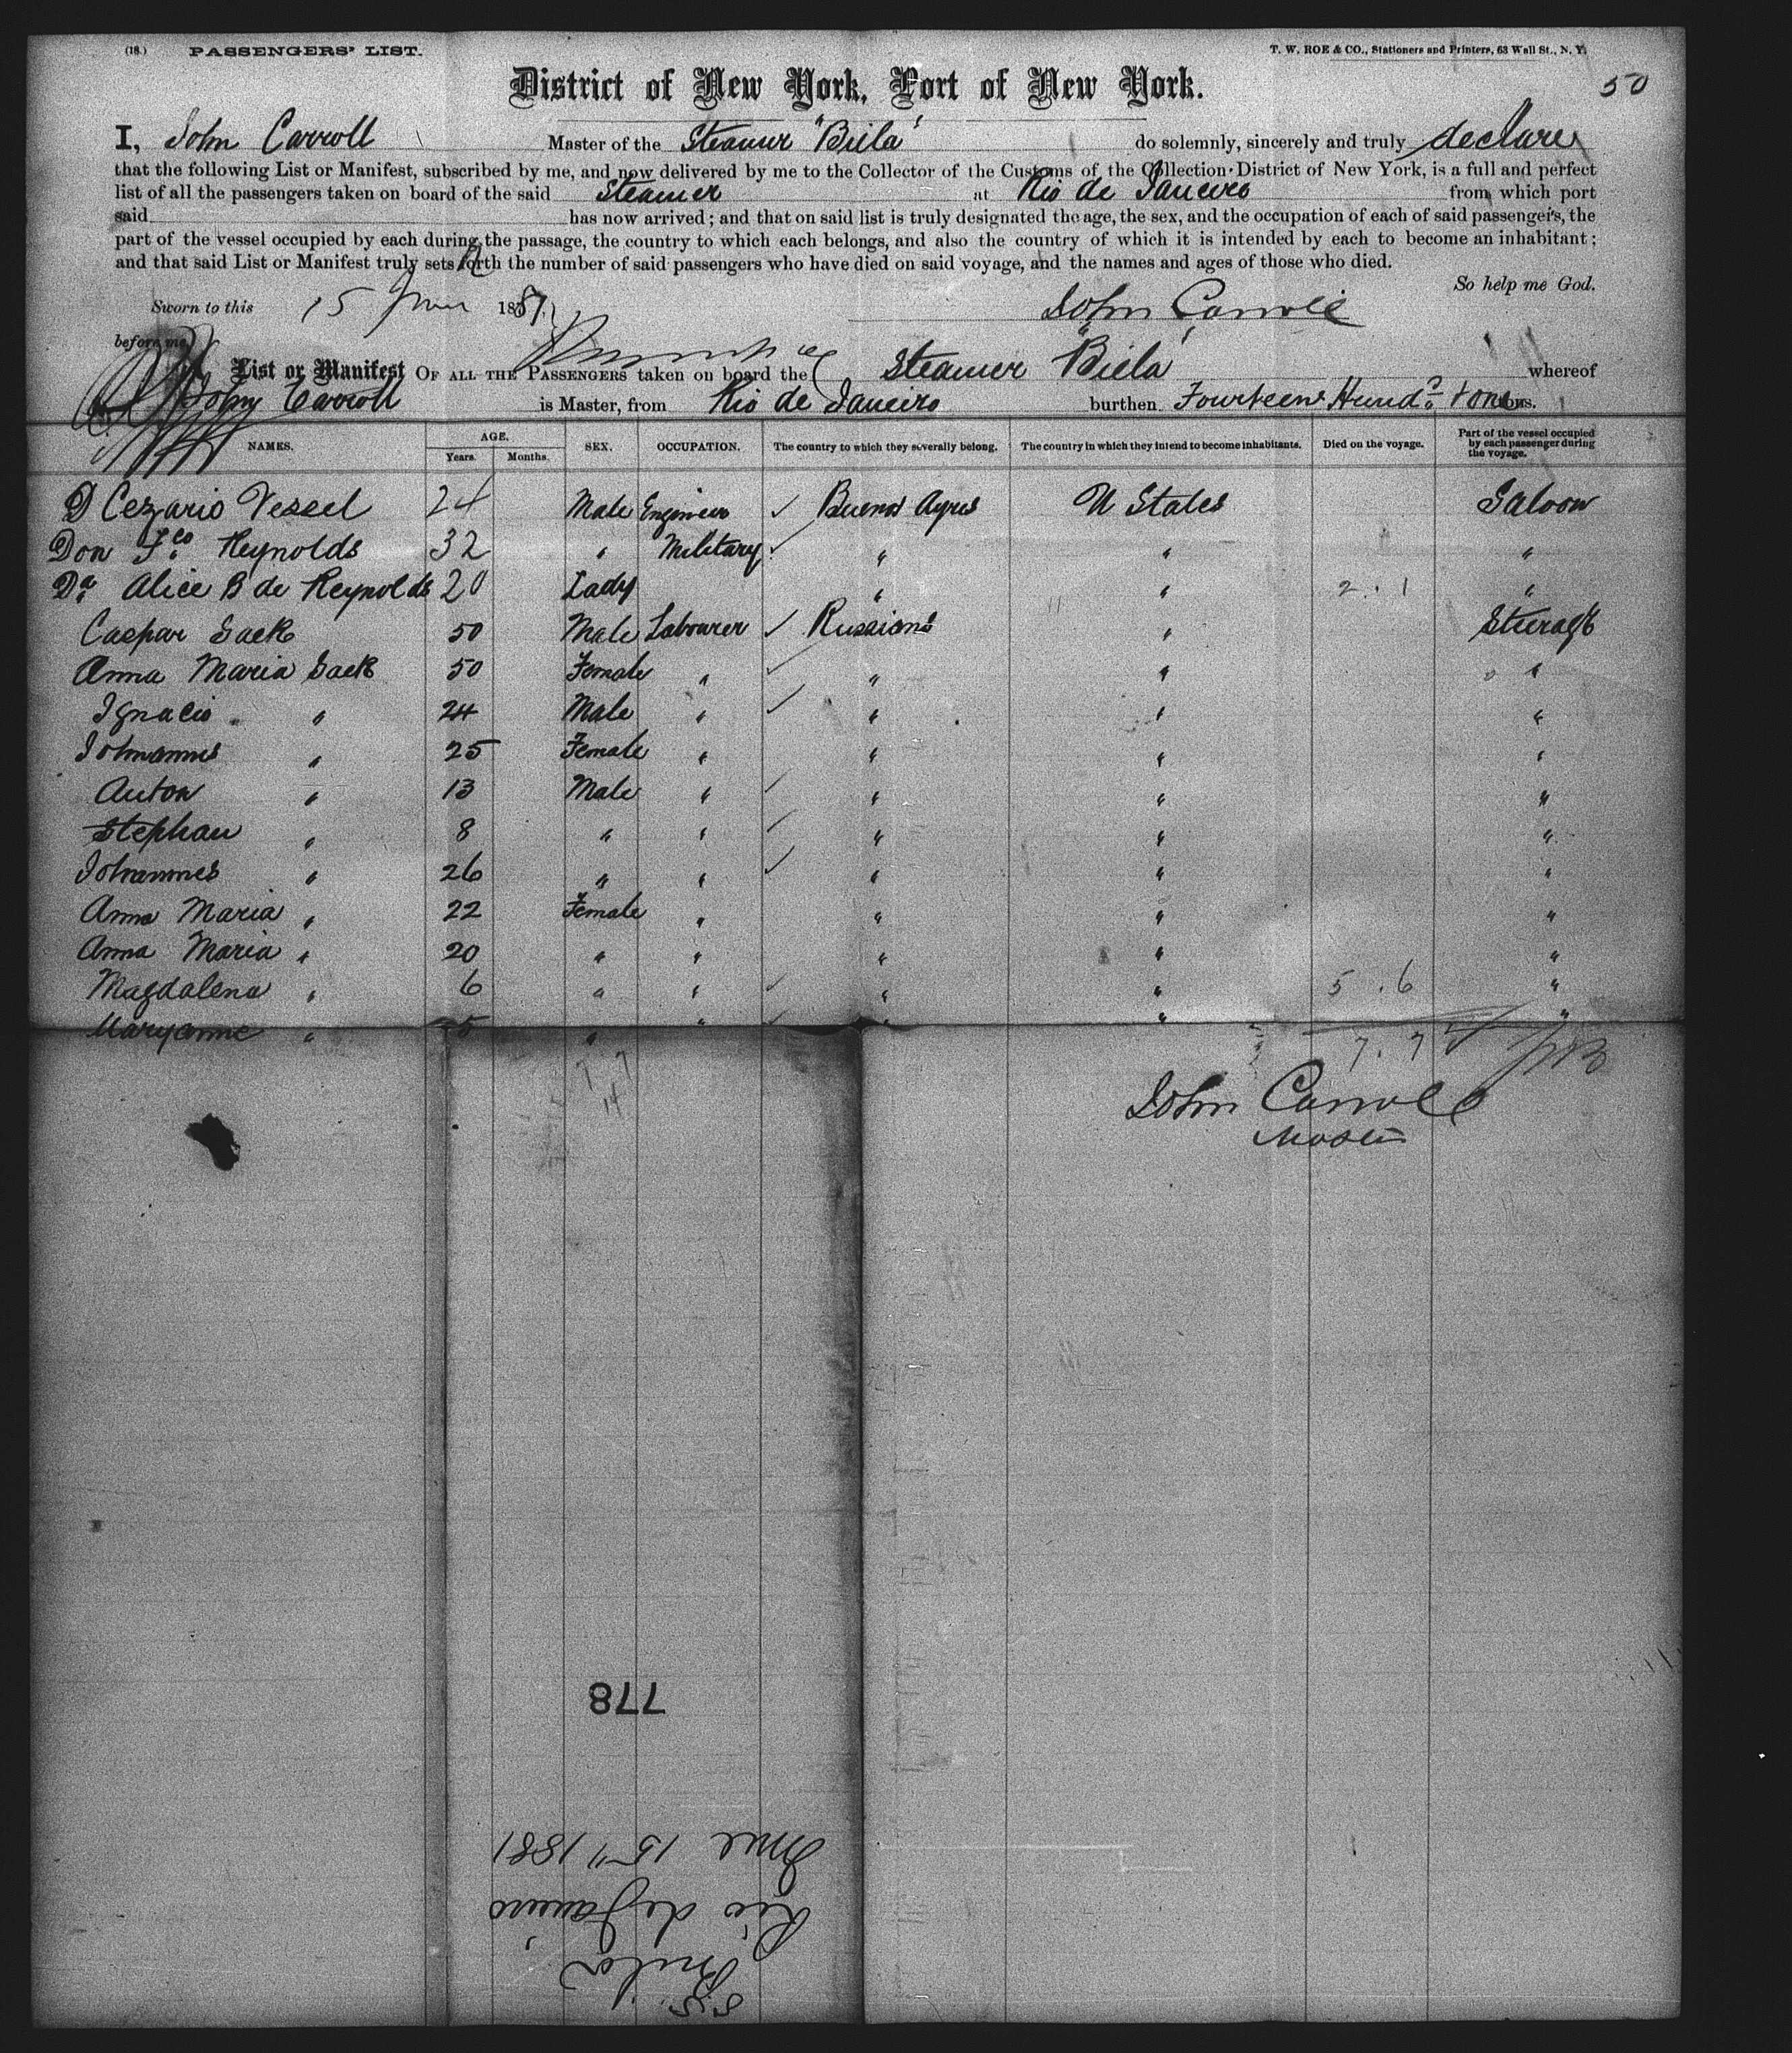 (18.) PASSENGERS' LIST. T. W. ROE & CO., Stationers and Printers, 63 Wall St., N. Y.
50
District of New York, Port of New York.
I, John Carroll Master of the Steamer "Biela" do solemnly, sincerely and truly declare
that the following List or Manifest, subscribed by me, and now delivered by me to the Collector of the Customs of the Collection District of New York, is a full and perfect
list of all the passengers taken on board of the said Steamer at Rio de Janeiro from which port
said has now arrived; and that on said list is truly designated the age, the sex, and the occupation of each of said passengers, the
part of the vessel occupied by each during the passage, the country to which each belongs, and also the country of which it is intended by each to become an inhabitant;
and that said List or Manifest truly sets forth the number of said passengers who have died on said voyage, and the names and ages of those who died.
So help me God.
Sworn to this 15 June 1881 John Carroll
before me,
List or Manifest OF ALL THE PASSENGERS taken on board the Steamer "Biela" whereof
John Carroll is Master, from Rio de Janeiro burthen Fourteen Hund^d tons tons.
NAMES. AGE. Years. Months. SEX. OCCUPATION. The country to which they severally belong. The country in which they intend to become inhabitants. Died on the voyage. Part of the vessel occupied by each passenger during the voyage.
D Cezario Vessel 24 Male Engineer ✓ Buenos Ayres U States Saloon
Don F^co Reynolds 32 " Military ✓ " " "
D^a Alice B de Reynolds 20 Lady " " 2 . 1 "
Caspar Sack 50 Male Labourer ✓ Russians " Steerage
Anna Maria Sack 50 Female " ✓ " " "
Ignacio " 24 Male " ✓ " " "
Johannes " 25 Female " " " "
Anton " 13 Male " ✓ " " "
Stephan " 8 " " ✓ " " "
Johannes " 26 " " ✓ " " "
Anna Maria " 22 Female " " " "
Anna Maria " 20 " " " " "
Magdalena " 6 " " ✓ " " 5 . 6 "
Maryanne " 5 " " ✓ " " "
7 7 7 . 7
14
John Carroll
Master
778
June 15" 1881
Rio de Janeiro
Biela
S.S.